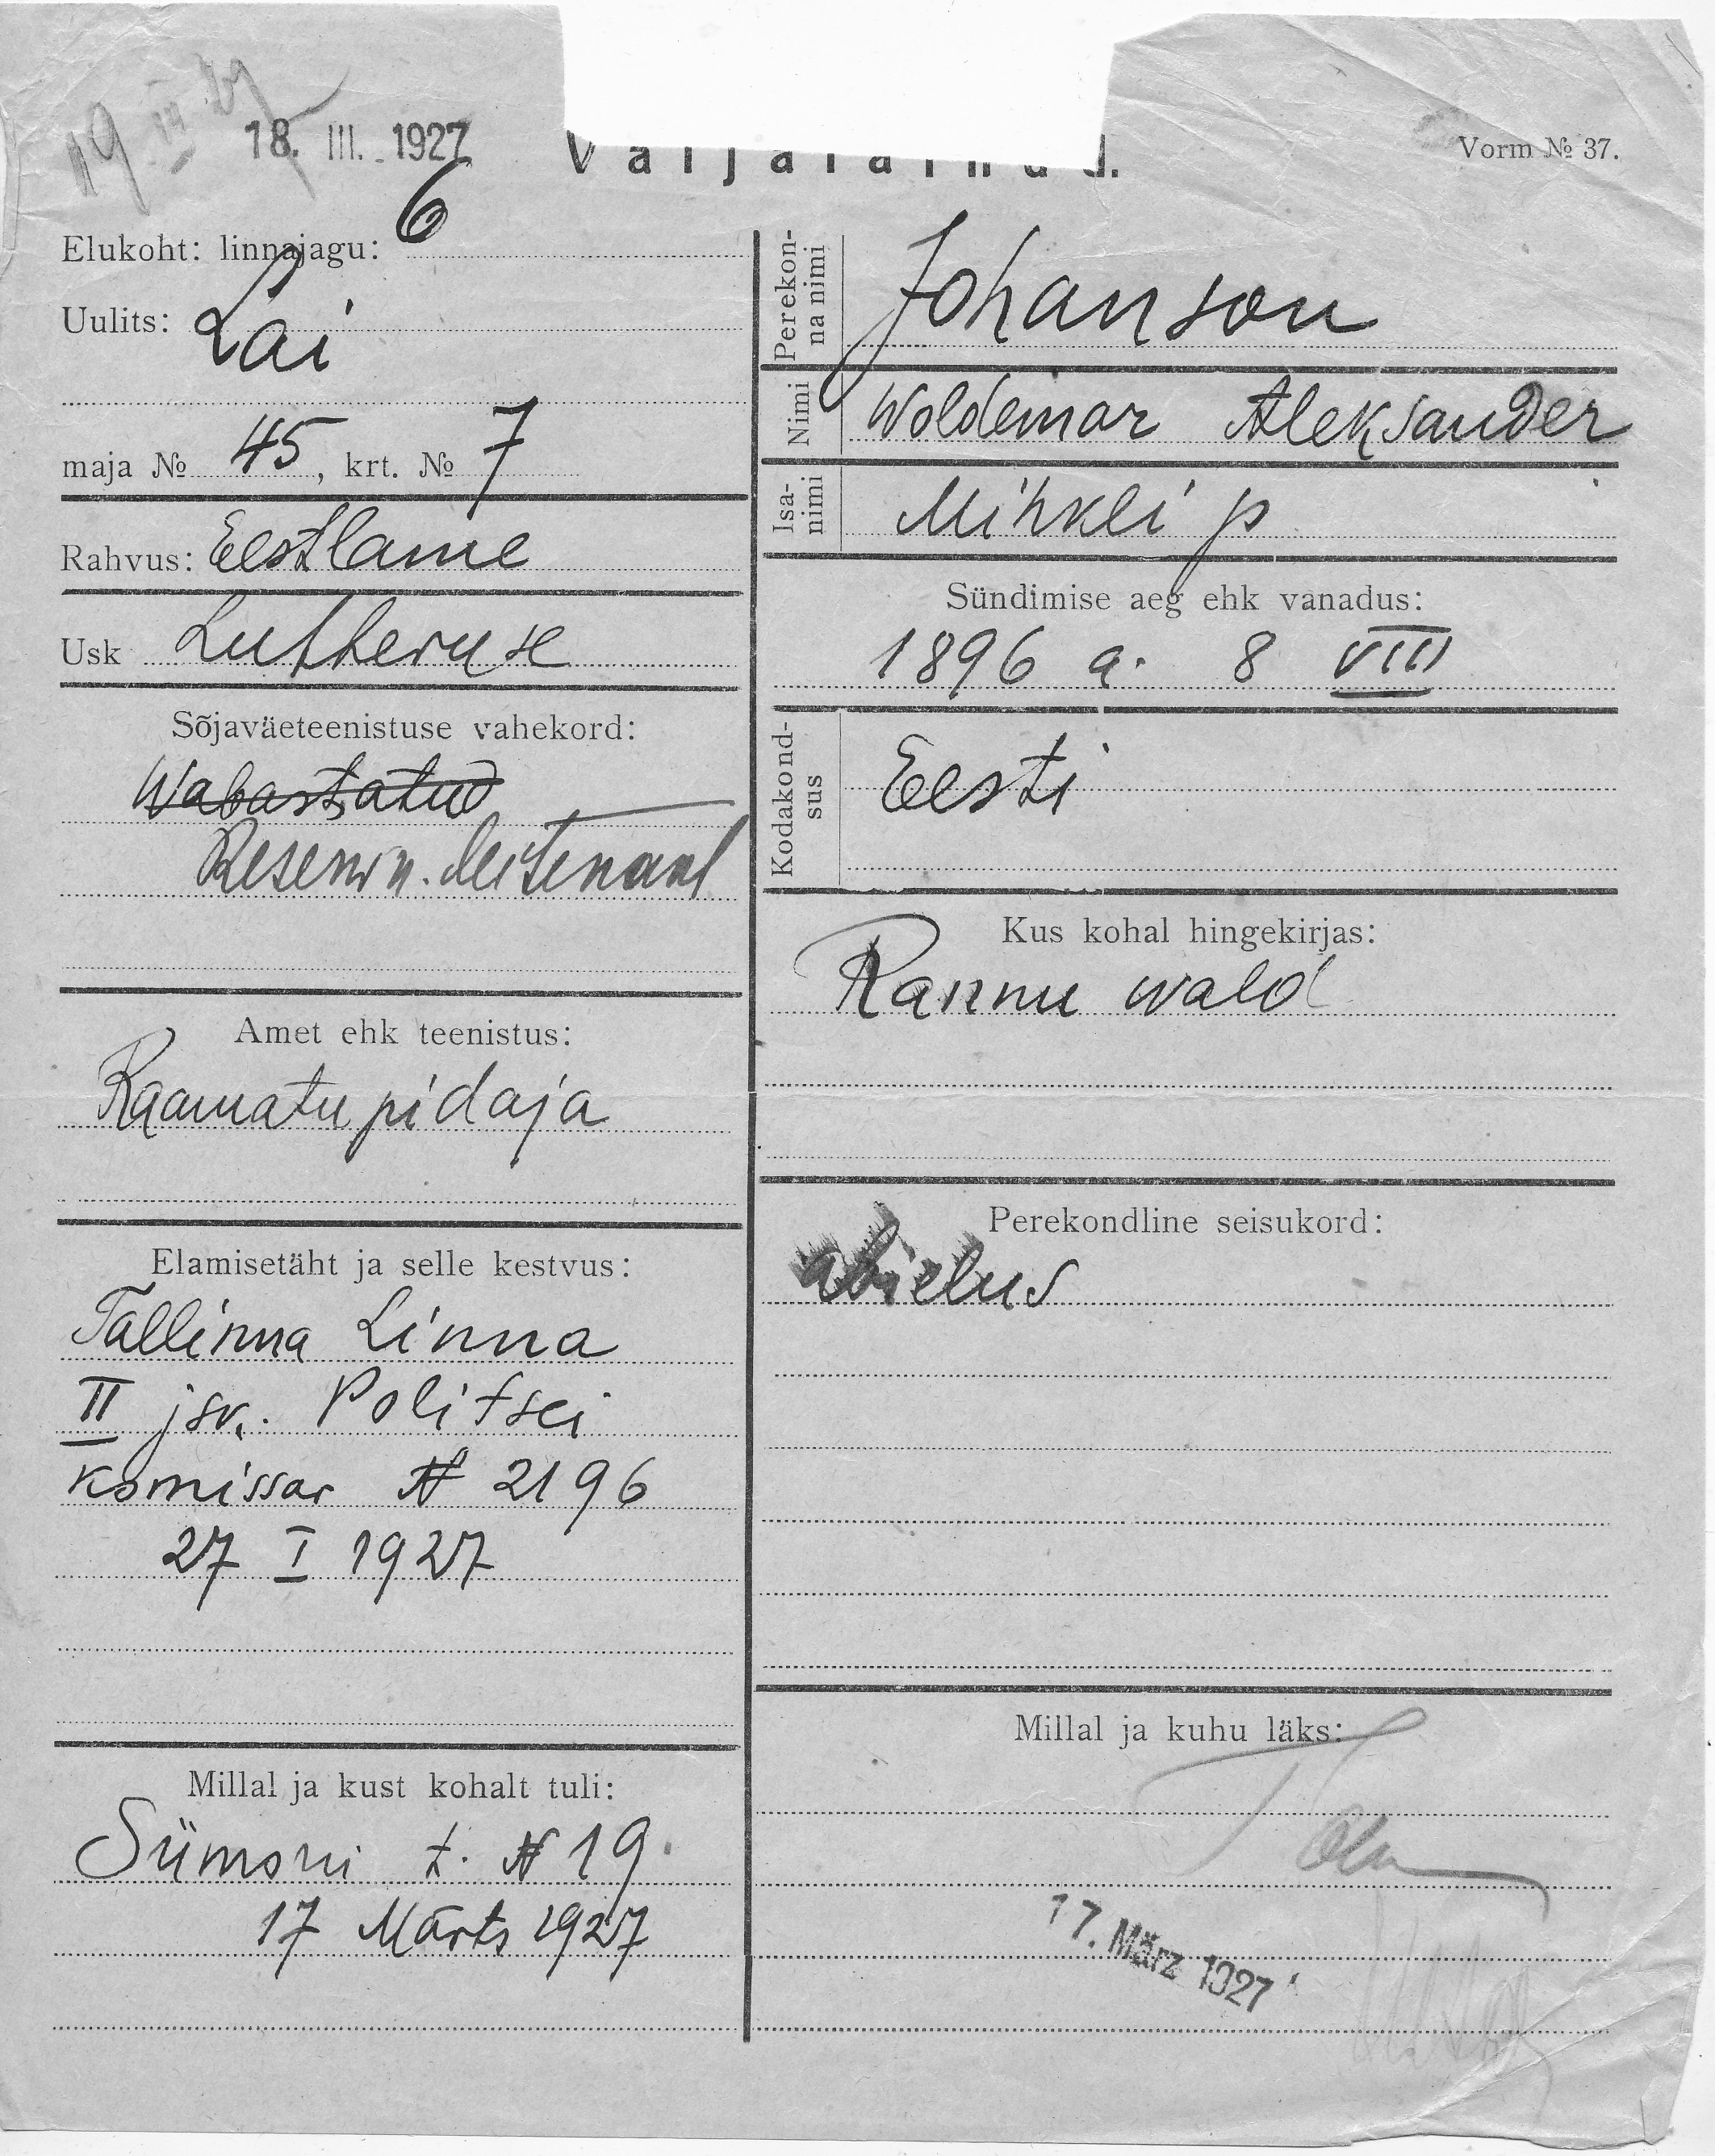 19 III 27
18. III. 1927
Vorm № 37.
Elukoht: linnajagu: 6
Uulits: Lai
maja № 45, krt. № 7
Rahvus: Eestlane
Usk Lutheruse
Sõjaväeteenistuse vahekord:
Wabastatud
Reserv n. leitenant
Amet ehk teenistus:
Raamatu pidaja
Elamisetäht ja selle kestvus:
Tallinna Linna
II jsk. Politsei
komissar N 2196
27 I 1927
Millal ja kust kohalt tuli:
Siimoni t. N 19.
17 Märts 1927
Perekon-
na nimi
Johanson
Nimi
Woldemar Aleksander
Isa-
nimi
Mihkli p
Sündimise aeg ehk vanadus:
1896 a. 8 VIII
Kodakond-
sus
Eesti
Kus kohal hingekirjas:
Rannu wald
Perekondline seisukord:
abielus
Millal ja kuhu läks:
17. März 1927